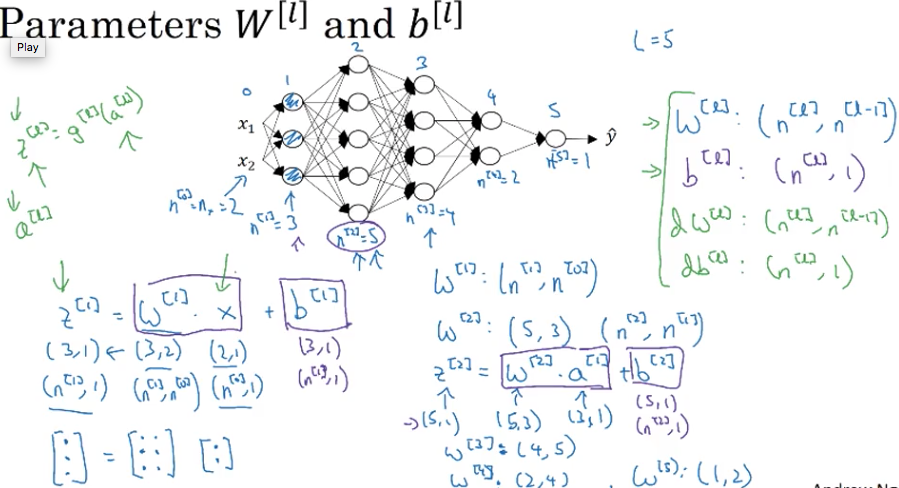 Parameters W^[l] and b^[l]
Play
L=5
0 1 2 3 4 5
x₁
x₂
ŷ
n^[0]=n_x=2
n^[1]=3
n^[2]=5
n^[3]=4
n^[4]=2
n^[5]=1
z^[l]=g^[l](a^[l])
a^[l]
W^[l]: (n^[l], n^[l-1])
b^[l]: (n^[l], 1)
dW^[l]: (n^[l], n^[l-1])
db^[l]: (n^[l], 1)
z^[1] = W^[1] · x + b^[1]
(3,1) ← (3,2) (2,1) (3,1)
(n^[1],1) (n^[1],n^[0]) (n^[0],1) (n^[1],1)
[:] = [::] [:]
W^[1]: (n^[1], n^[0])
W^[2]: (5,3) (n^[2], n^[1])
z^[2] = W^[2] · a^[1] + b^[2]
→(5,1) (5,3) (3,1) (5,1)
(n^[2],1)
W^[3]: (4,5)
W^[4]: (2,4), W^[5]: (1,2)